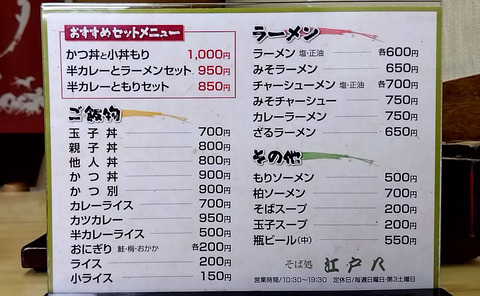 おすすめセットメニュー
かつ丼と小丼もり 1,000円
半カレーとラーメンセット 950円
半カレーともりセット 850円
ご飯物
玉子丼 700円
親子丼 800円
他人丼 800円
かつ丼 900円
かつ別 900円
カレーライス 700円
カツカレー 950円
半カレーライス 500円
おにぎり 鮭・梅・おかか 各200円
ライス 200円
小ライス 150円
ラーメン
ラーメン 塩・正油 各600円
みそラーメン 650円
チャーシューメン 塩・正油 各700円
みそチャーシュー 750円
カレーラーメン 750円
ざるラーメン 650円
その他
もりソーメン 500円
柏ソーメン 700円
そばスープ 200円
玉子スープ 200円
瓶ビール(中) 550円
そば処 江戸八
営業時間/10:30~19:30 定休日/毎週日曜日・第3土曜日